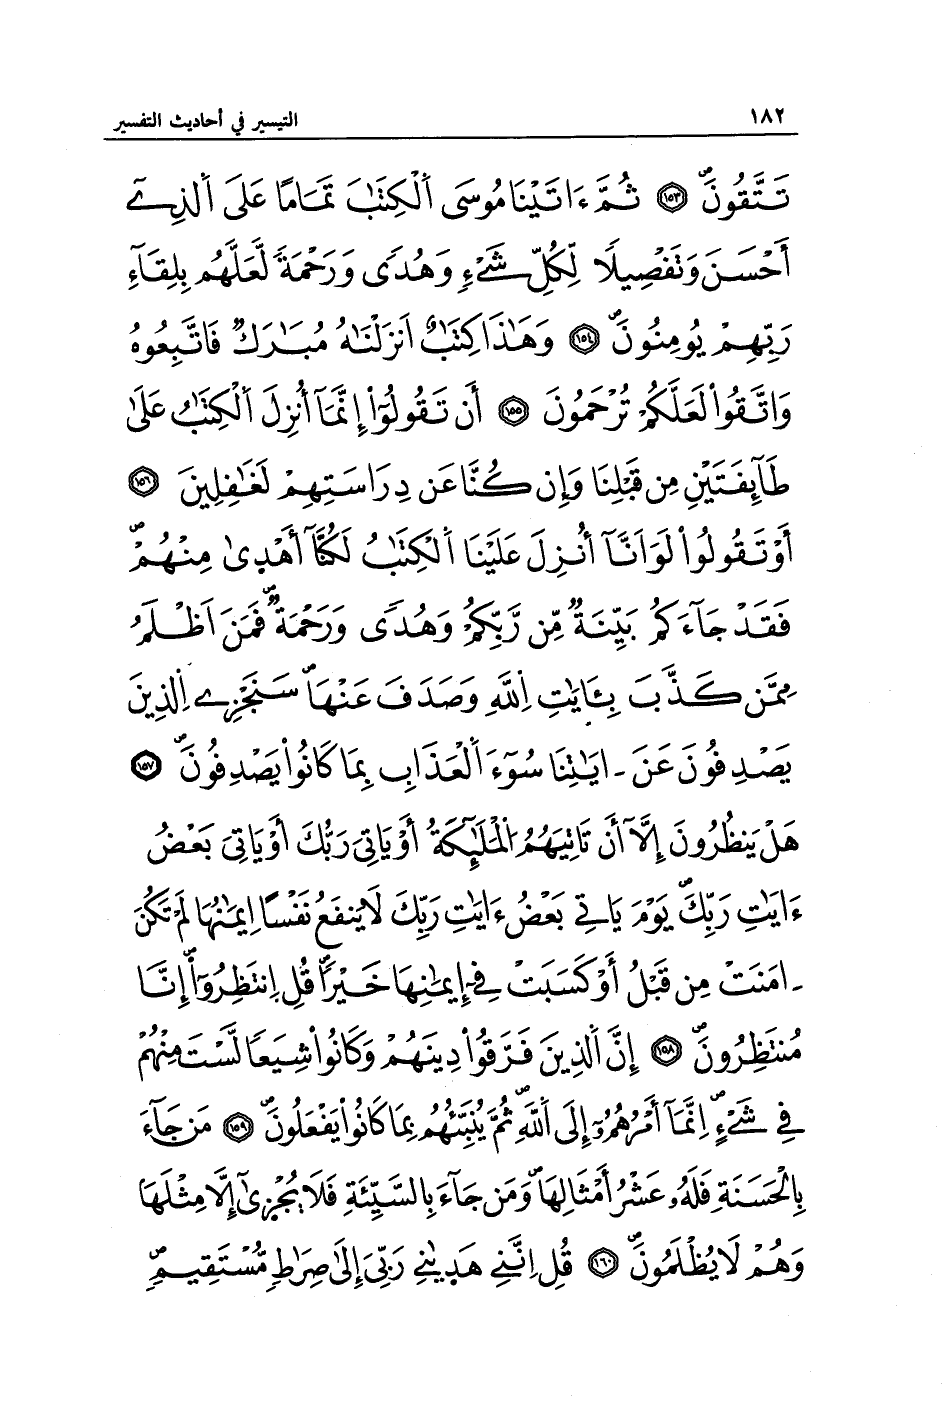 ١٨٢ التيسير في أحاديث التفسير
تَتَّقُونَۖ ١٥٣ ثُمَّ ءَاتَيْنَا مُوسَى اَ۬لْكِتَٰبَ تَمَامًا عَلَى اَ۬لذِےٓ
أَحْسَنَ وَتَفْصِيلًا لِّكُلِّ شَےْءٖ وَهُدًى وَرَحْمَةً لَّعَلَّهُم بِلِقَآءِ
رَبِّهِمْ يُومِنُونَۖ ١٥٤ وَهَٰذَا كِتَٰبٌ اَنزَلْنَٰهُ مُبَٰرَكٌۖ فَاتَّبِعُوهُ
وَاتَّقُواْ لَعَلَّكُمْ تُرْحَمُونَ ١٥٥ أَن تَقُولُوٓاْ إِنَّمَآ أُنزِلَ اَ۬لْكِتَٰبُ عَلَىٰ
طَآئِفَتَيْنِ مِن قَبْلِنَا وَإِن كُنَّا عَن دِرَاسَتِهِمْ لَغَٰفِلِينَ ١٥٦
أَوْ تَقُولُواْ لَوَ اَنَّآ أُنزِلَ عَلَيْنَا اَ۬لْكِتَٰبُ لَكُنَّآ أَهْدٜىٰ مِنْهُمْۖ
فَقَدْ جَآءَكُم بَيِّنَةٌ مِّن رَّبِّكُمْ وَهُدًى وَرَحْمَةٌۖ فَمَنَ اَظْلَمُ
مِمَّن كَذَّبَ بِـَٔايَٰتِ اِ۬للَّهِ وَصَدَفَ عَنْهَاۖ سَنَجْزِے اِ۬لذِينَ
يَصْدِفُونَ عَنَ ـ ايَٰتِنَا سُوٓءَ اَ۬لْعَذَابِ بِمَا كَانُواْ يَصْدِفُونَۖ ١٥٧
هَلْ يَنظُرُونَ إِلَّآ أَن تَاتِيَهُمُ اُ۬لْمَلَٰٓئِكَةُ أَوْ يَاتِيَ رَبُّكَ أَوْ يَاتِيَ بَعْضُ
ءَايَٰتِ رَبِّكَۖ يَوْمَ يَاتِے بَعْضُ ءَايَٰتِ رَبِّكَ لَا يَنفَعُ نَفْسًا اِيمَٰنُهَا لَمْ تَكُنَ
ـ امَنَتْ مِن قَبْلُ أَوْ كَسَبَتْ فِےٓ إِيمَٰنِهَا خَيْرًاۖ قُلِ اِ۪نتَظِرُوٓاْۖ إِنَّا
مُنتَظِرُونَۖ ١٥٨ إِنَّ اَ۬لذِينَ فَرَّقُواْ دِينَهُمْ وَكَانُواْ شِيَعًا لَّسْتَ مِنْهُمْ
فِے شَےْءٍۖ اِنَّمَآ أَمْرُهُمُۥٓ إِلَى اَ۬للَّهِۖ ثُمَّ يُنَبِّئُهُم بِمَا كَانُواْ يَفْعَلُونَۖ ١٥٩ مَن جَآءَ
بِالْحَسَنَةِ فَلَهُۥ عَشْرُ أَمْثَالِهَاۖ وَمَن جَآءَ بِالسَّيِّئَةِ فَلَا يُجْزٜىٰٓ إِلَّا مِثْلَهَا
وَهُمْ لَا يُظْلَمُونَۖ ١٦٠ قُلِ اِنَّنِے هَدٜيٰنِے رَبِّيَ إِلَىٰ صِرَاطٖ مُّسْتَقِيمٖۖ